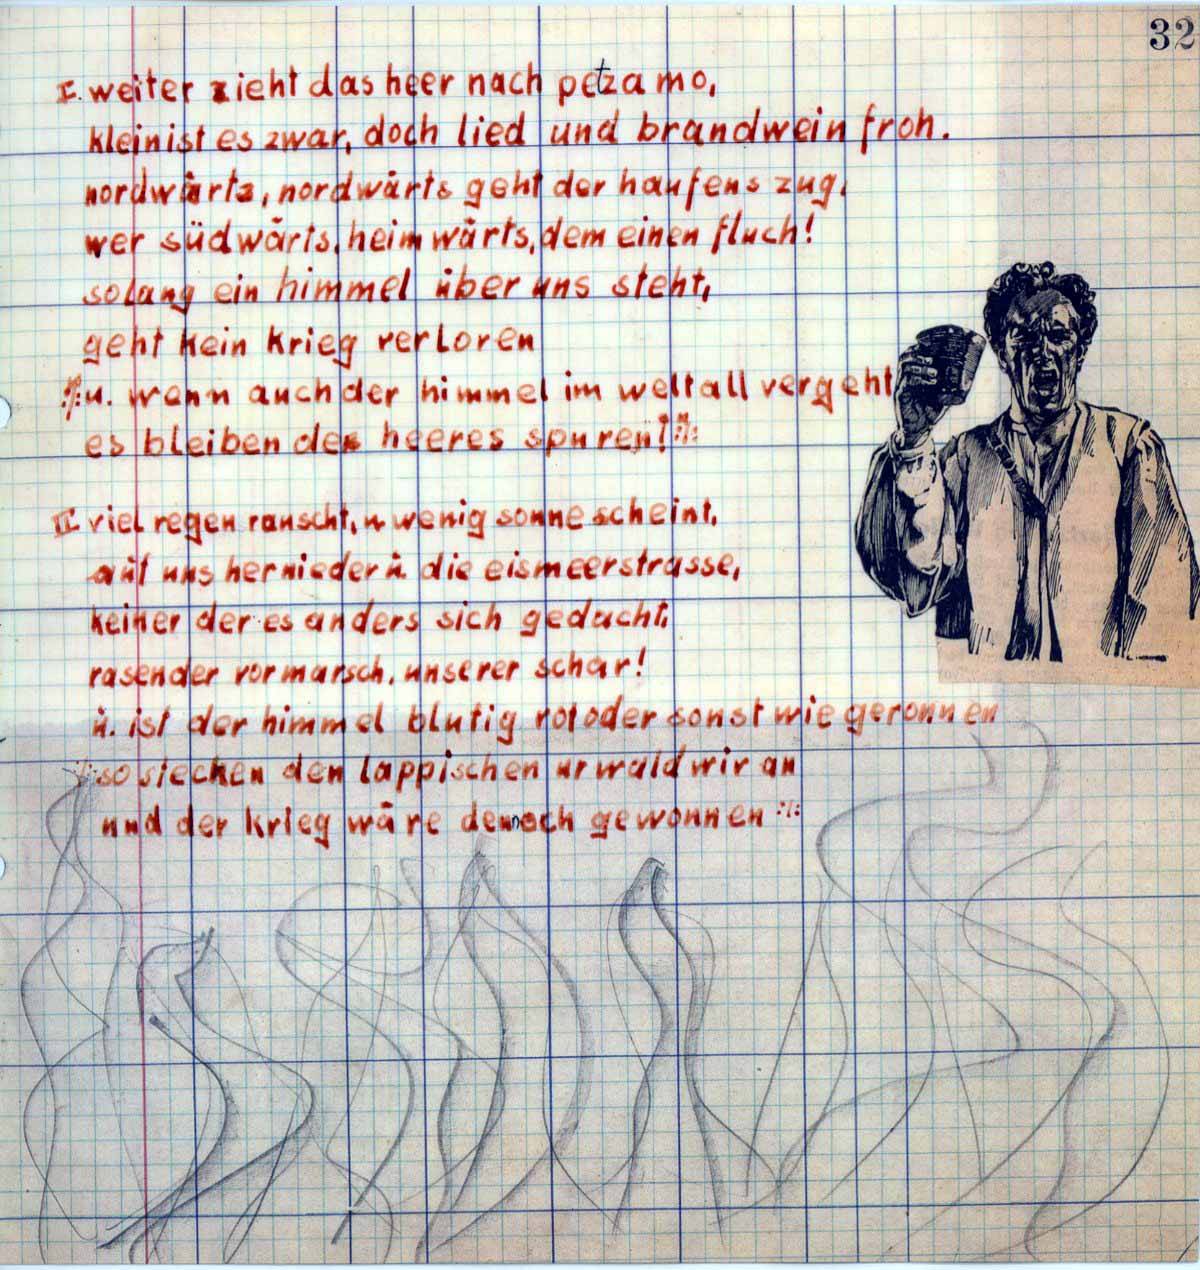 32
I. weiter zieht das heer nach petzamo,
klein ist es zwar, doch lied und brandwein froh.
nordwärts, nordwärts geht der haufens zug.
wer südwärts, heimwärts, dem einen fluch!
solang ein himmel über uns steht,
geht kein krieg verloren
:/: u. wenn auch der himmel im weltall vergeht
es bleiben des heeres spuren! :/:
II viel regen rauscht, u wenig sonne scheint,
auf uns hernieder ü. die eismeerstrasse,
keiner der es anders sich gedacht,
rasender vormarsch, unserer schar!
u. ist der himmel blutig rot oder sonst wie geronnen
:/: so stecken den lappischen urwald wir an
und der krieg wäre dennoch gewonnen :/: